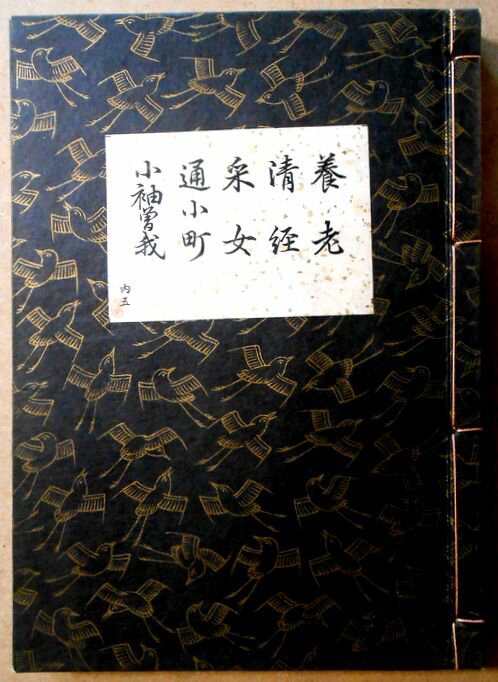 養老
清経
采女
通小町
小袖曽我
内五